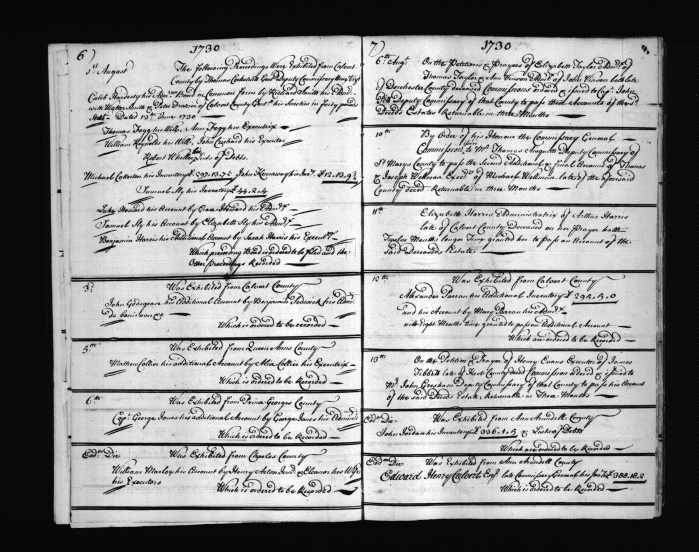 6)
1730
1st August The following Proceedings Were Exhibited from Calvert
County by Thomas Deputy Commissary Thereof
Caleb his Bond in Common form by Richard Smith his
with Walter Smith & Peter of Calvert County Gent his Sureties in forty pounds
Dated 13th June 1730
Thomas Fogg his Will, Ann Fogg his Executrix
William Reynolds his Will, John his Executor
Robert Wheeler List of Debts
Michael Catterton his Inventory £ 297.13.7½ John his Inv.ty £ 12.13.9½
Samuel Sly his Inventory £ 44.2.4
his Account by his Adm.x
Samuel Sly his Account by Elizabeth Sly his Adm.x
Benjamin Harris his Additional Account by Sarah Harris his Execut.x
Which preceding Bond is ordered to be filed and the
Other proceedings Recorded
3d Was Exhibited from Calvert County
John his Additional Account by Benjamin his Adm.r
de bonis non &c
Which is ordered to be recorded
5th Was Exhibited from Queen Anns County
Matthew Collier his additional Account by Collier his Executrix
Which is ordered to be Recorded
6th Was Exhibited from Prince Georges County
Cap.t George Jones his additional Account by George Jones his Admin.r
Which is ordered to be Recorded
Eod.m Die Was Exhibited from Charles County
William Marloy his Account by Henry Acton Jun.r & Eleanor his Wife
his Executors Which is ordered to be Recorded
7)
1730
6th Aug.t On the Petition & Prayer of Elizabeth Taylor Adm.x of
Thomas Taylor & Ann Vinson Adm.x of John Vinson both late
of Dorchester County deceased Commissions ordered & issued to Cap.t John
Deputy Commissary of that County to pass their Accounts of the s.d
Deceds Estates Returnable in three Months
10th By Order of his Honour the Commissary General
Commission to Mr. Thomas Deputy Commissary of
St Marys County to pass the Second Additional & final Account of Thomas
& Joseph Wellman Exec.rs of Michael Wellman late of the aforesaid
County deced Returnable in three Months
11th Elizabeth Harris Administratrix of Arthur Harris
late of Calvert County Deceased on her Prayer hath
Twelve Months longer Time granted her to pass an Account of the
Said Deceaseds Estate
12th Was Exhibited from Calvert County
Alexander Parran his Additional Inventory £ 292.5.0
and his Account by Mary Parran his Adm.x
with Eight Months time granted to pass an Additional Account
Which are ordered to be recorded
13th On the Petition & Prayer of Henry Evans Executor of James
Tibbitt late of Kent County deced Commission ordered & issued to
Mr. John Gresham Deputy Commissary of that County to pass his Account
of the said Deceds Estate Returnable in Three Months
Eod.m Die Was Exhibited from Ann Arundell County
John Jordan his Inventory £ & List of Debts
Which are ordered to be Recorded
Eod.m Die Was Exhibited from Ann Arundell County
Edward Henry Calvert Esq.r late Commissary General his Inv.ty £ 388.18.2
Which is ordered to be Recorded